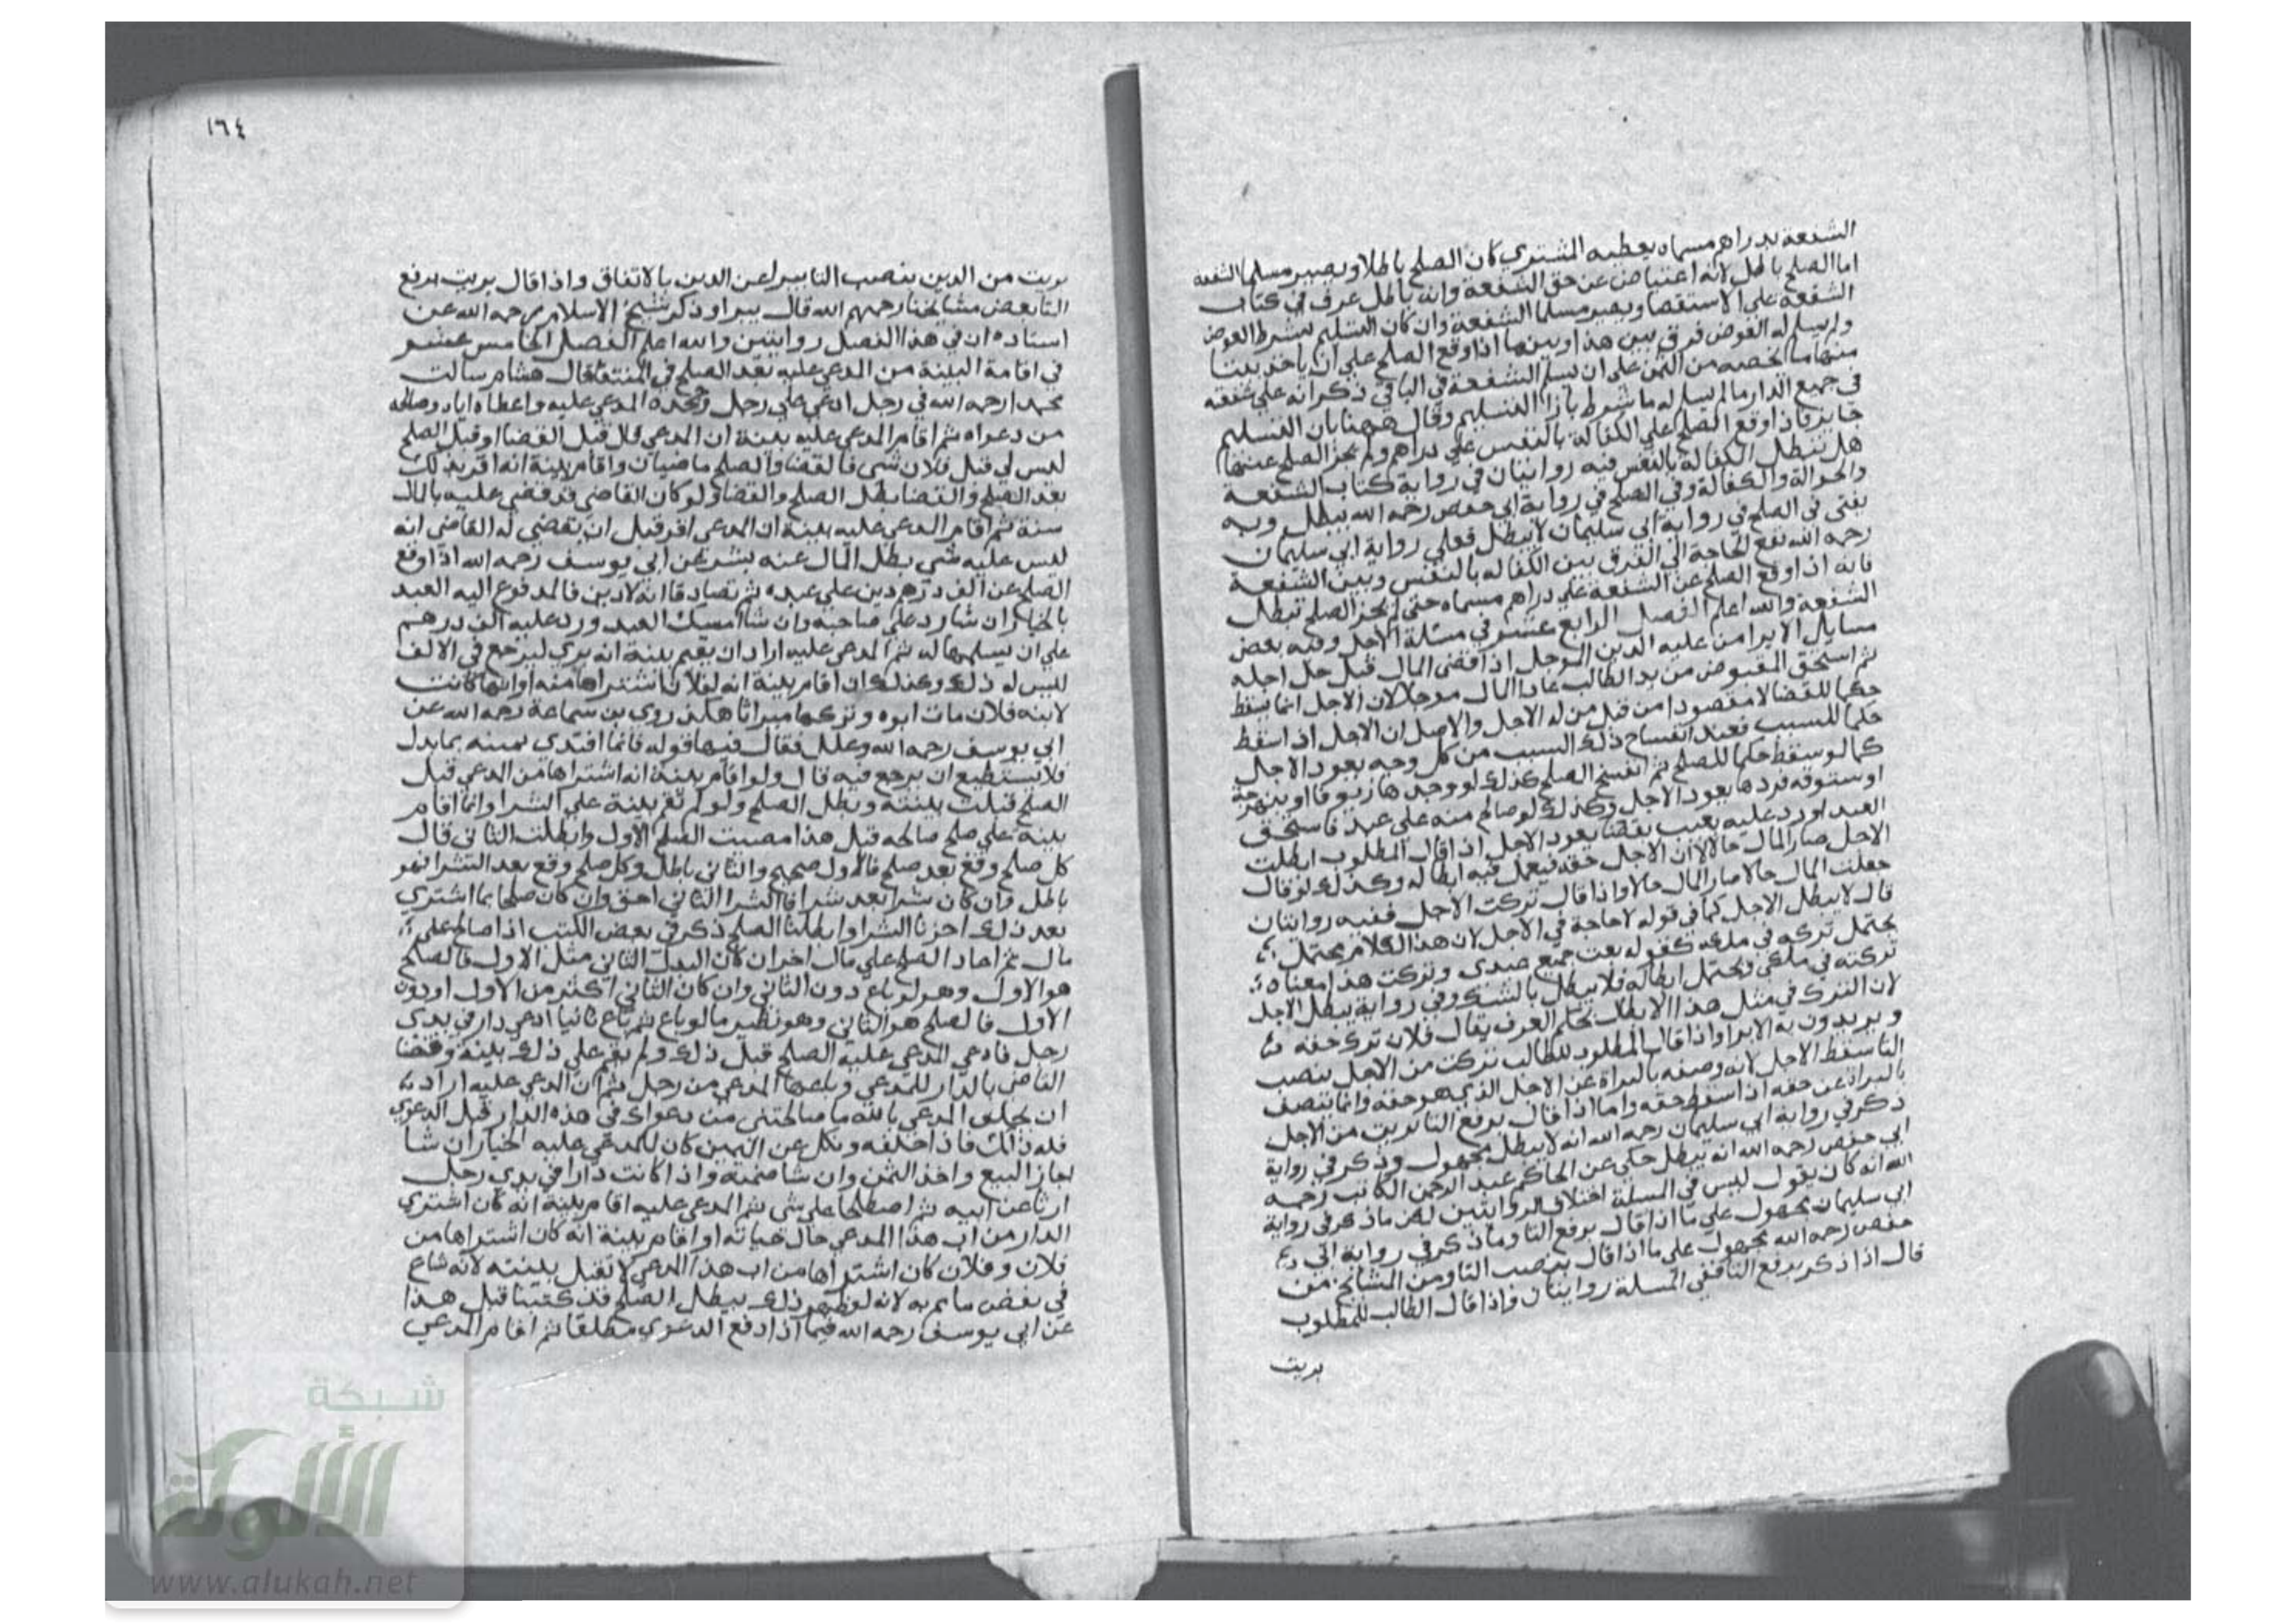 الشفعة بدراهم مسماه يعطيه المشتري كان الصلح باطلا ويصير مسلما الشفعه
اما الصلح باطل لانه اعتياض عن حق الشفعة وانه باطل عرف في كتاب
الشفعة على الاستقصا ويصير مسلما الشفعة وان كان التسليم بشرط العوض
ولم يسلم له العوض فرق بين هذا وبينهما اذا وقع الصلح على ان ياخذ بيتا
منها بما يخصه من الثمن على ان يسلم الشفعة في الباقي ذكر انه على شفعته
في جميع الدار ما لم يسلم له ما شرط بازا التسليم وقال ههنا بان التسليم
جايز فاذا وقع الصلح على الكفالة بالنفس على دراهم ولم يجز الصلح عنها
هل تبطل الكفالة بالنفس فيه روايتان في رواية كتاب الشفعة
والحوالة والكفالة وفي الصلح في رواية ابي حفص رحمه الله يبطل وبه
يفتى في الصلح في رواية ابي سليمان لا يبطل فعلى رواية ابي سليمان
رحمه الله تقع الحاجة الى الفرق بين الكفالة بالنفس وبين الشفعة
فانه اذا وقع الصلح عن الشفعة على دراهم مسماه حتى لم يجز الصلح تبطل
الشفعة والله اعلم الفصل الرابع عشر في مسئلة الاجل وفيه بعض
مسايل الابرا من عليه الدين الموجل اذا قضى المال قبل حل اجله
ثم استحق المقبوض من يد الطالب عاد المال موجلا لان الاجل انما يسقط
حكما للقضا لا مقصودا من قبل من له الاجل والاصل ان الاجل اذا سقط
حكما للسبب فعند انفساخ ذلك السبب من كل وجه يعود الاجل
كما لو سقط حكما للصلح ثم انفسخ الصلح كذلك لو وجدها زيوفا او بنهرجة
او ستوقه فردها يعود الاجل وكذلك لو صالح منه على عبد فاستحق
العبد او رد عليه بعيب بقضا يعود الاجل اذا قال المطلوب ابطلت
الاجل صار المال حالا لان الاجل حقه فيعمل فيه ابطاله وكذلك لو قال
جعلت المال حالا صار المال حالا واذا قال تركت الاجل ففيه روايتان
قال لا يبطل الاجل كما في قوله لا حاجة في الاجل لان هذا الكلام يحتمل
يحتمل تركه في ملكه كقوله بعت جميع عبيدى وتركت هذا معناه
تركته في ملكي ويحتمل ابطاله فلا يبطل بالشك وفي رواية يبطل الاجل
لان الترك في مثل هذا الابطال بحكم العرف يقال فلان ترك حقه
ويريدون به الابرا واذا قال المطلوب للطالب تركت من الاجل بنصب
التا سقط الاجل لانه وصفه بالبراة عن الاجل الذي هو حقه وانما يتصف
بالبراة عن حقه اذا سقط حقه واما اذا قال برفع التا بريت من الاجل
ذكر في رواية ابي سليمان رحمه الله انه لا يبطل مجهول وذكر في رواية
ابي حفص رحمه الله انه يبطل حكي عن الحاكم عبد الرحمن الكاتب رحمه
الله انه كان يقول ليس في المسلة اختلاف الروايتين لكن ما ذكر في رواية
ابي سليمان مجهول على ما اذا قال برفع التا وما ذكر في رواية ابي
حفص رحمه الله مجهول على ما اذا قال بنصب التا ومن المشايخ من
قال اذا ذكر برفع التا ففي المسلة روايتان واذا قال الطالب للمطلوب
بريت
١٦٤
بريت من الدين بنصب التا يبرا عن الدين بالاتفاق واذا قال بريت برفع
التا بعض مشايخنا رحمهم الله قال يبرا وذكر شيخ الاسلام رحمه الله عن
استاده ان في هذا الفصل روايتين والله اعلم الفصل الخامس عشر
في اقامة البينة من المدعى عليه بعد الصلح في المنتقا قال هشام سالت
محمدا رحمه الله في رجل ادعي على رجل وجحده المدعي عليه واعطاه اياه وصالحه
من دعواه ثم اقام المدعى عليه بينة ان المدعي قال قبل القضا او قبل الصلح
ليس لي قبل فلان شى فالقضا والصلح ماضيان واقام بينة انه اقر بذلك
بعد الصلح والقضا بطل الصلح والقضا ولو كان القاضي قد قضى عليه بالمال
سنة ثم اقام المدعي عليه بينة ان المدعى اقر قبل ان يقضي له القاضى انه
ليس عليه شي بطل المال عنه بشر عن ابي يوسف رحمه الله اذا وقع
الصلح عن الف درهم دين على عبده ثم تصادقا انه لا دين فالمدفوع اليه العبد
بالخيار ان شا رد على صاحبه وان شا امسك العبد ورد عليه الف درهم
على ان يسلمها له ثم المدعى عليه اراد ان يقيم بينة انه بري ليرجع في الالف
لليس له ذلك وكذلك ان اقام بينة انه لفلان اشتراها منه او انها كانت
لابنه فلان مات ابوه وتركها ميراثا هكذى روي بن سماعة رحمه الله عن
ابي يوسف رحمه الله وعلل فقال فيها قوله فانما افتدى يمينه بما بدل
فلا يستطيع ان يرجع فيه قال ولو اقام بينة انه اشتراها من المدعي قبل
الصلح قبلت بينته ويطل الصلح ولو لم تقم بينة على الشرا وانما اقام
بينة على صلح صالحه قبل هذا مصيت الصلح الاول وابطلت الثانى قال
كل صلح وقع بعد صلح فالاول صحيح والثاني باطل وكل صلح وقع بعد الشرا فهو
باطل وان كان شرا بعد شرا فالشرا الثاني احق وان كان صلحا بما اشتري
بعد ذلك اجزنا الشرا وابطلنا الصلح ذكر في بعض الكتب اذا صالح على
مال ثم اعاد الصلح على مال اخر ان كان البدل الثاني مثل الاول فالصلح
هو الاول وهو لو باع دون الثاني وان كان الثاني اكثر من الاول او دون
الاول فالصلح هو الثاني وهو نظير ما لو باع ثم باع ثانيا ادعى دار في يدى
رجل فادعي المدعي عليه الصلح قبل ذلك ولم يقم على ذلك بينة وقضا
القاضى بالدار للمدعي وباعها المدعي من رجل ثم ان المدعي عليه اراد
ان يحلف المدعي بالله ما صالحتنى من دعواك في هذه الدار قبل الدعوي
فله ذالك فاذا حلفه ونكل عن اليمين كان للمدعي عليه الخيار ان شا
اجاز البيع واخذ الثمن وان شا ضمنه واذا كانت دارا في يدي رجل
ارثا عن ابيه ثم اصطلحا على شى ثم المدعي عليه اقام بينة انه كان اشتري
الدار من اب هذا المدعي حال حياته او اقام بينة انه كان اشتراها من
فلان وفلان كان اشتراها من اب هذا المدعي لا تقبل بينته لانه شاع
في نقض ما تم به لانه لو ظهر ذلك يبطل الصلح قد كتبنا قبل هذا
عن ابي يوسف رحمه الله فيما اذا دفع الدعوي مطلقا ثم اقام المدعي
شبكة
الألوكة
www.alukah.net